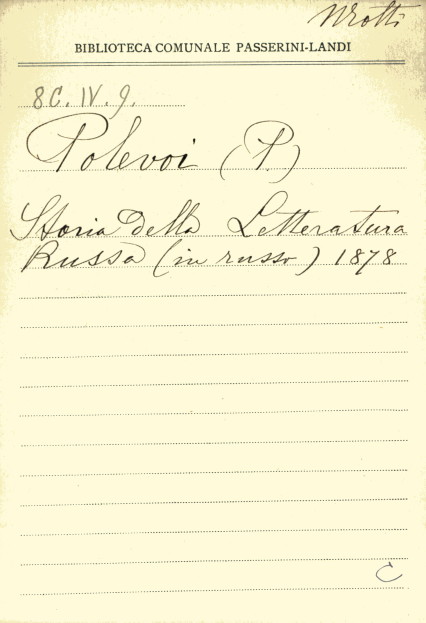 BIBLIOTECA COMUNALE PASSERINI-LANDI
8C. IV. 9.
Polevoi (P.)
Storia della Letteratura
Russa (in russo) 1878
C